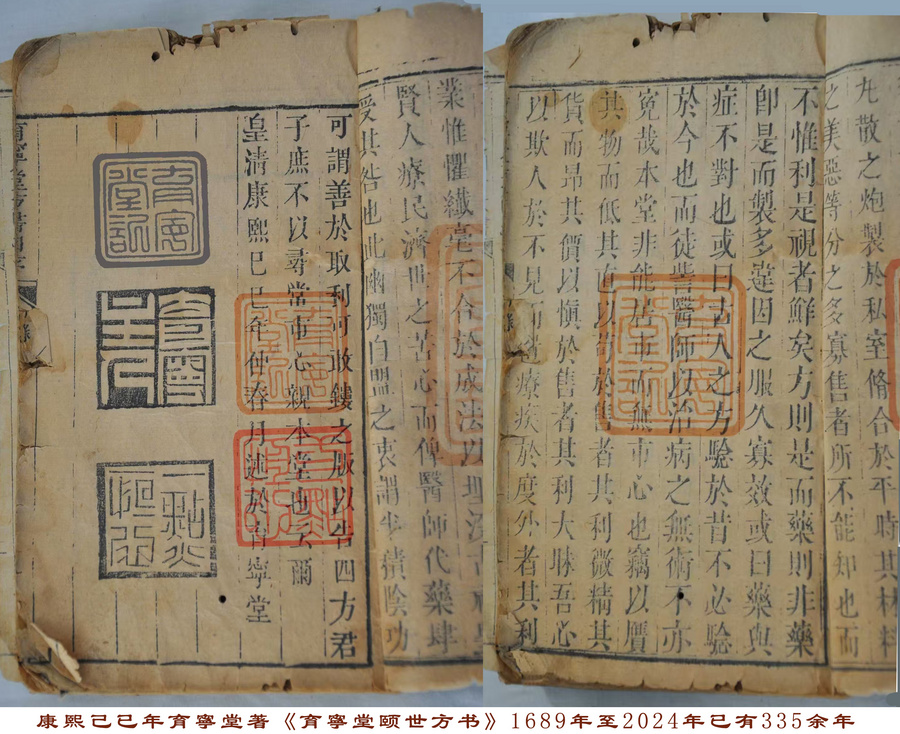 丸散之炮製於私室脩合於平時其材料
之美惡等分之多寡售者所不能知也而
不惟利是視者鮮矣方則是而藥則非藥
即是而製多違因之服久寡效或曰藥與
症不對也或曰古人之方驗於昔不必驗
於今也而徒訾醫師以治病之無術不亦
寃哉本堂非能居市而無市心也竊以贋
其物而低其直以苟於售者其利微精其
貨而昂其價以愼於售者其利大眛吾心
以欺人於不見而療疾於度外者其利
業惟懼纖毫不合於成法以
賢人療民濟世之苦心而俾醫師代藥肆
受其咎也此幽獨自盟之衷謂坐積陰功
可謂善於取利可敢鏤之版以告四方君
子庶不以尋常市心親本堂也云爾
皇清康熙己巳年仲春月述於育寧堂
育寧堂記
康熙己巳年育寧堂著《育寧堂颐世方书》1689年至2024年已有335余年